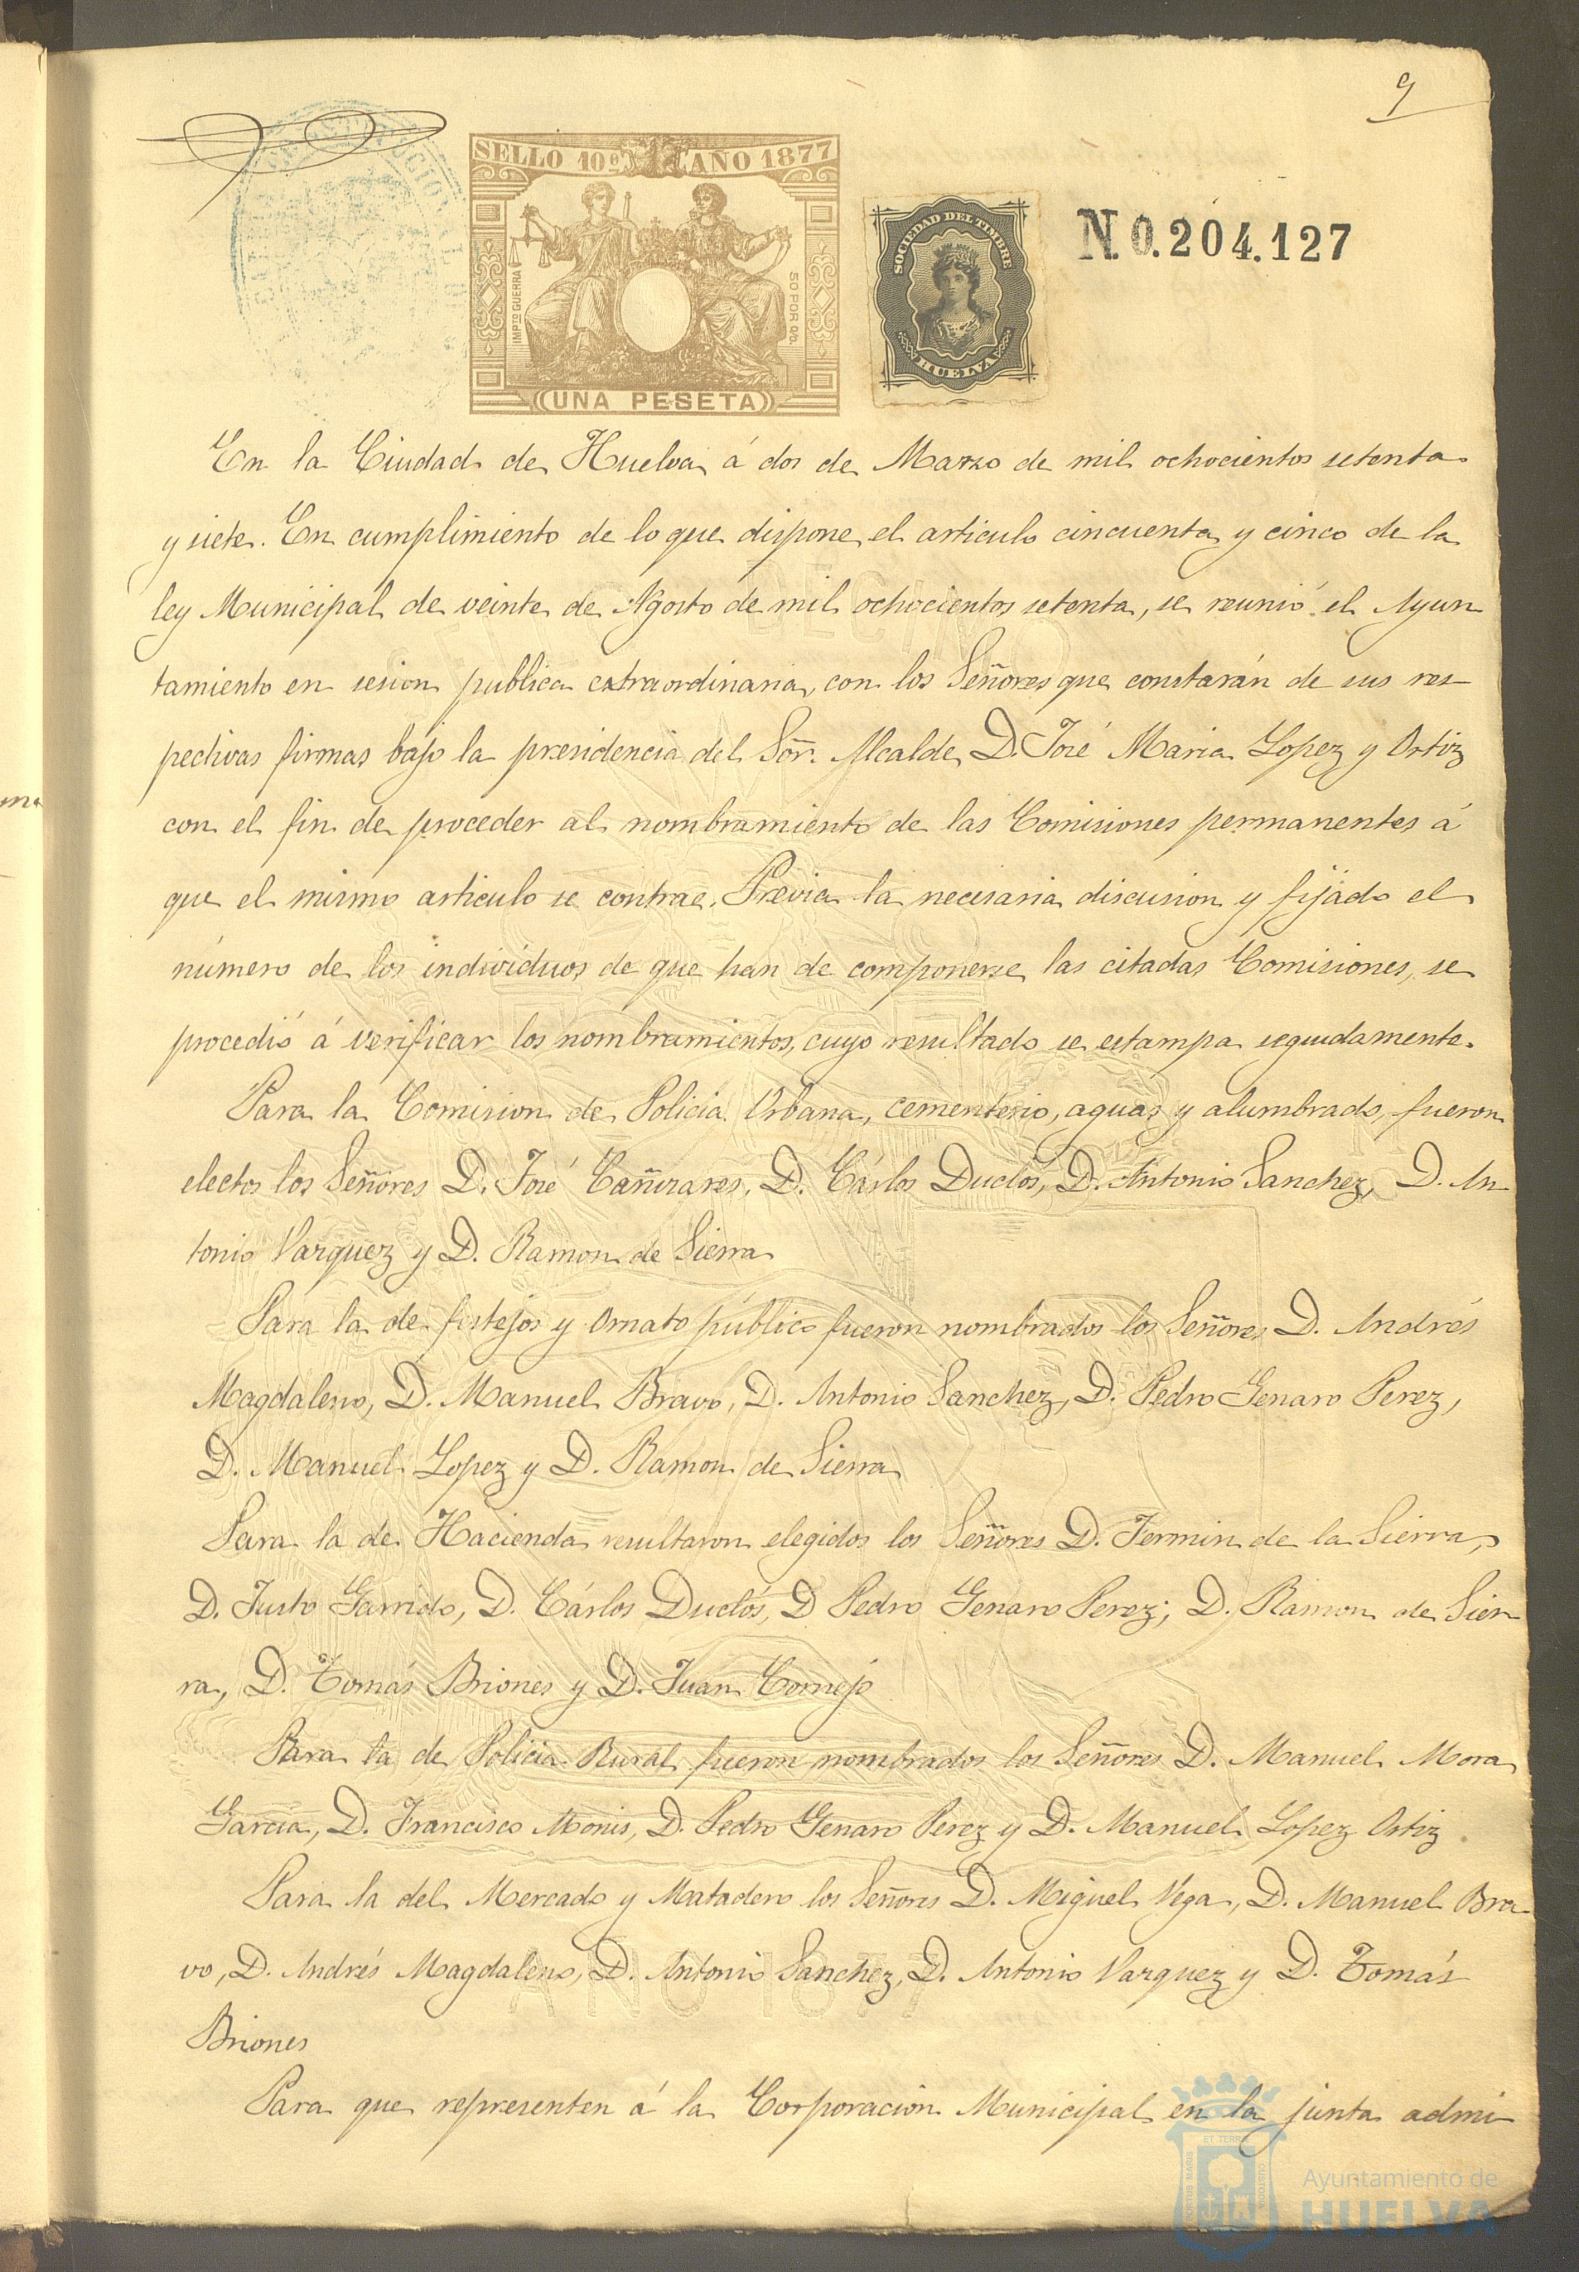 9
SELLO 10º AÑO 1877
IMPTO GUERRA
50 POR 0/0.
(UNA PESETA)
SOCIEDAD DEL TIMBRE
HUELVA
N. 0.204.127
En la Ciudad de Huelva á dos de Marzo de mil ochocientos setenta
y siete. En cumplimiento de lo que dispone el articulo cincuenta y cinco de la
ley Municipal de veinte de Agosto de mil ochocientos setenta, se reunió el Ayun
tamiento en sesion publica extraordinaria, con los Señores que constarán de sus res-
pectivas firmas bajo la presidencia del Sor. Alcalde D. José Maria Lopez y Ortiz
con el fin de proceder al nombramiento de las Comisiones permanentes á
que el mismo articulo se contrae. Previa la necesaria discusion y fijado el
número de los individuos de que han de componerse las citadas Comisiones, se
procedió á verificar los nombramientos, cuyo resultado se estampa seguidamente.
Para la Comision de Policia Urbana, cementerio, aguas y alumbrado, fueron
electos los Señores D. José Cañizares, D. Cárlos Duclós, D. Antonio Sanchez, D. An-
tonio Vazquez y D. Ramon de Sierra
Para la de festejos y Ornato público fueron nombrados los Señores D. Andrés
Magdaleno, D. Manuel Bravo, D. Antonio Sanchez, D. Pedro Genaro Perez,
D. Manuel Lopez y D. Ramon de Sierra
Para la de Hacienda resultaron elegidos los Señores D. Fermin de la Sierra,
D. Justo Garrido, D. Cárlos Duclós, D Pedro Genaro Perez; D. Ramon de Sier-
ra, D. Tomás Briones y D. Juan Cornejo
Para la de Policia Rural fueron nombrados los Señores D. Manuel Mora
Garcia, D. Francisco Monis, D. Pedro Genaro Perez y D. Manuel Lopez Ortiz.
Para la del Mercado y Matadero los Señores D. Miguel Vega, D. Manuel Bra-
vo, D. Andrés Magdaleno, D. Antonio Sanchez, D. Antonio Vazquez y D. Tomás
Briones
AÑO 1877
Para que representen á la Corporacion Municipal en la junta admi-
Ayuntamiento de
HUELVA